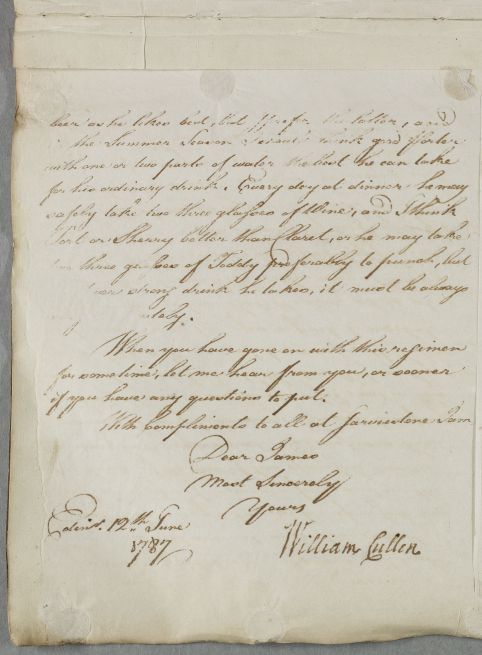 beer as he likes but, but I prefer the latter, and
the Summer Season I should think good Porter
with one or two parts of water the best he can take
for his ordinary drink. Every day at dinner he may
safely take two three glasses of Wine, and I think
Port or Sherry better than Claret, or he may take
three glasses of Toddy preferably to punch, but
strong drink he takes, it must be always
When you have gone on with this regimen
for sometime, let me hear from you, or sooner
if you have any questions to put.
With Compliments to all at Jarvistone I am
Dear James
Most Sincerely
Yours
Edinr. 12th June
1787
William Cullen